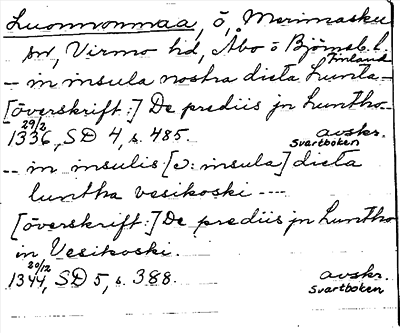 Luonnonmaa, ö, Merimasku
sn, Virmo hd, Åbo o Björneb. l.
Finland
-- in insula nostra dicta Lunta-
[överskrift:] De prediis jn Luntho-
29/2
1336, SD 4, s. 485. avskr.
Svartboken
-- in insulis [ɔ: insula] dicta
luntha vesikoski ----
[överskrift:] De prediis jn Luntho
in Vesikoski.
20/12
1344, SD 5, s. 388. avskr.
Svartboken